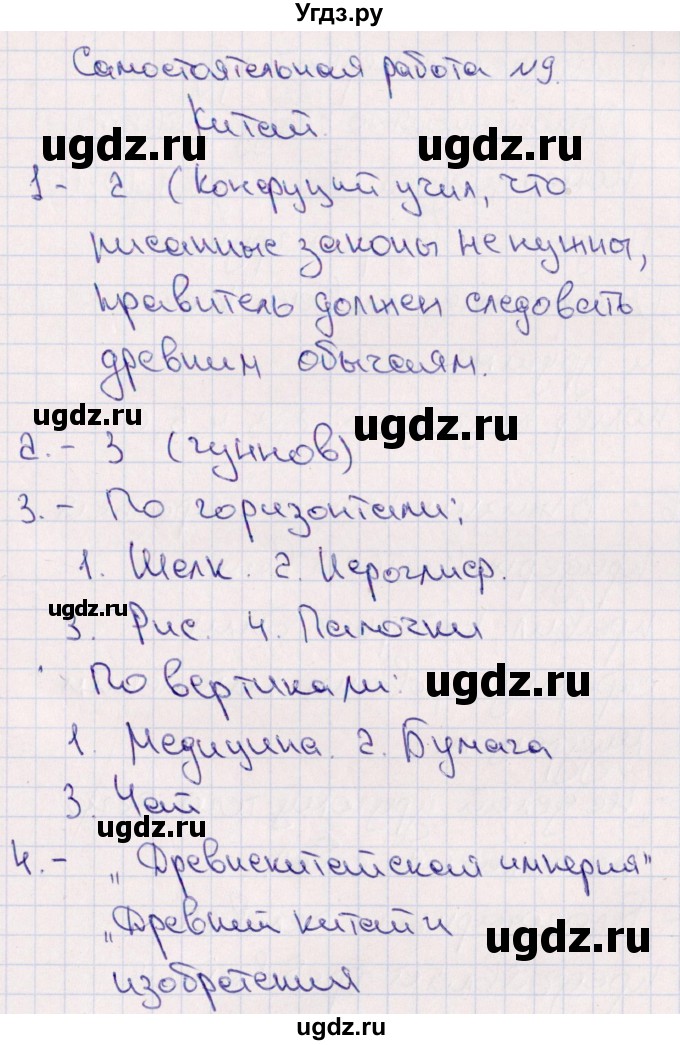 Угдз.ру
Самостоятельная работа №9.
Китай.
ugdz.ru ugdz.ru
1- 2 (Конфуций учил, что
писанные законы не нужны,
правитель должен следовать
древним обычаям.
ugdz.ru ugdz.ru
2.- 3 (гуннов)
3.- По горизонтали:
1. Шелк. 2. Иероглиф.
ugdz.ru
3. Рис. 4. Палочки
По вертикали:
ugdz.ru
1. Медицина. 2. Бумага
3. Чай
ugdz.ru
4.- „Древнекитайская империя"
„Древний Китай и
ugdz.ru
изобретения
ugdz.ru